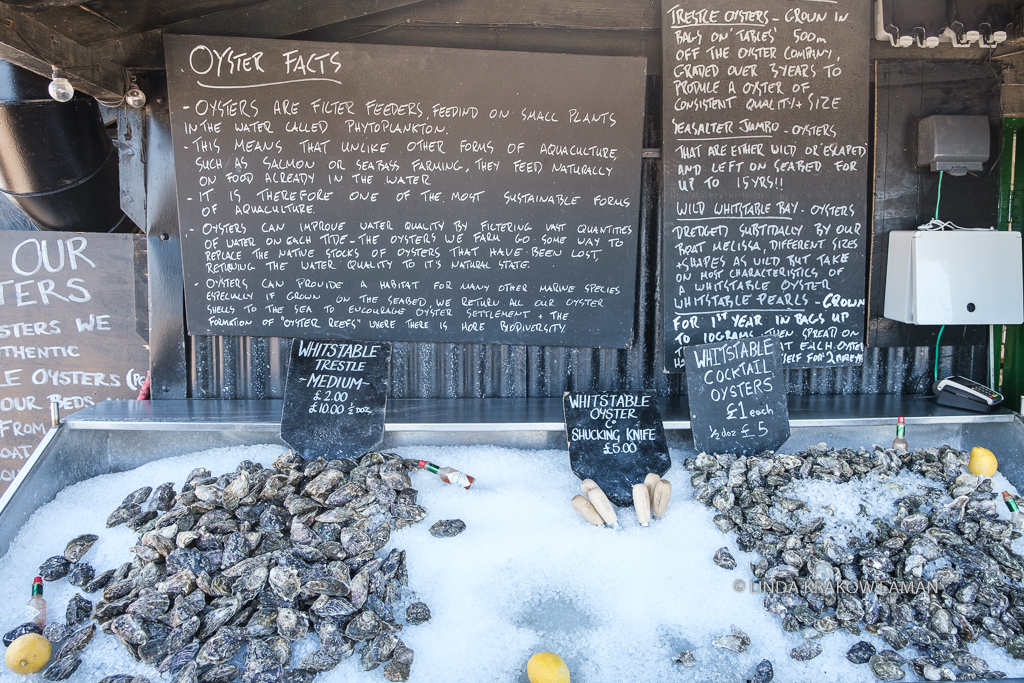 OYSTER FACTS
- OYSTERS ARE FILTER FEEDERS, FEEDIND ON SMALL PLANTS
IN THE WATER CALLED PHYTOPLANKTON.
- THIS MEANS THAT UNLIKE OTHER FORMS OF AQUACULTURE,
SUCH AS SALMON OR SEABASS FARMING, THEY FEED NATURALLY
ON FOOD ALREADY IN THE WATER
- IT IS THEREFORE ONE OF THE MOST SUSTAINABLE FORMS
OF AQUACULTURE.
- OYSTERS CAN IMPROVE WATER QUALITY BY FILTERING VAST QUANTITIES
OF WATER ON EACH TIDE - THE OYSTERS WE FARM GO SOME WAY TO
REPLACE THE NATIVE STOCKS OF OYSTERS THAT HAVE BEEN LOST,
RETURING THE WATER QUALITY TO IT'S NATURAL STATE.
- OYSTERS CAN PROVIDE A HABITAT FOR MANY OTHER MARINE SPECIES
ESPECIALLY IF GROWN ON THE SEABED, WE RETURN ALL OUR OYSTER
SHELLS TO THE SEA TO ENCOURAGE OYSTER SETTLEMENT + THE
FORMATION OF "OYSTER REEFS" WHERE THERE IS MORE BIODIVERSITY.
TRESTLE OYSTERS - GROWN IN
BAGS ON 'TABLES' 500m
OFF THE OYSTER COMPANY,
GRADED OVER 3 YEARS TO
PRODUCE A OYSTER OF
CONSISTENT QUALITY + SIZE
SEASALTER JUMBO - OYSTERS
THAT ARE EITHER WILD OR 'ESCAPED'
AND LEFT ON SEABED FOR
UP TO 15 YRS!!
WILD WHITSTABLE BAY - OYSTERS
DREDGED SUBTIDALLY BY OUR
BOAT MELISSA, DIFFERENT SIZES
+ SHAPES AS WILD BUT TAKE
ON MOST CHARACTERISTICS OF
A WHITSTABLE OYSTER
WHITSTABLE PEARLS - GROWN
FOR 1ST YEAR IN BAGS UP
TO 10 GRAMS, THEN SPREAD ON
EACH OYSTER
FOR 2 MORE YRS
OUR
STERS WE
OYSTERS
OUR BEDS
FROM
WHITSTABLE
TRESTLE
- MEDIUM -
£2.00
£10.00 ½ DOZ
WHITSTABLE
OYSTER
SHUCKING KNIFE
£5.00
WHITSTABLE
COCKTAIL
OYSTERS
£1 each
½ doz £5
© LINDA KRAKOW EAMAN